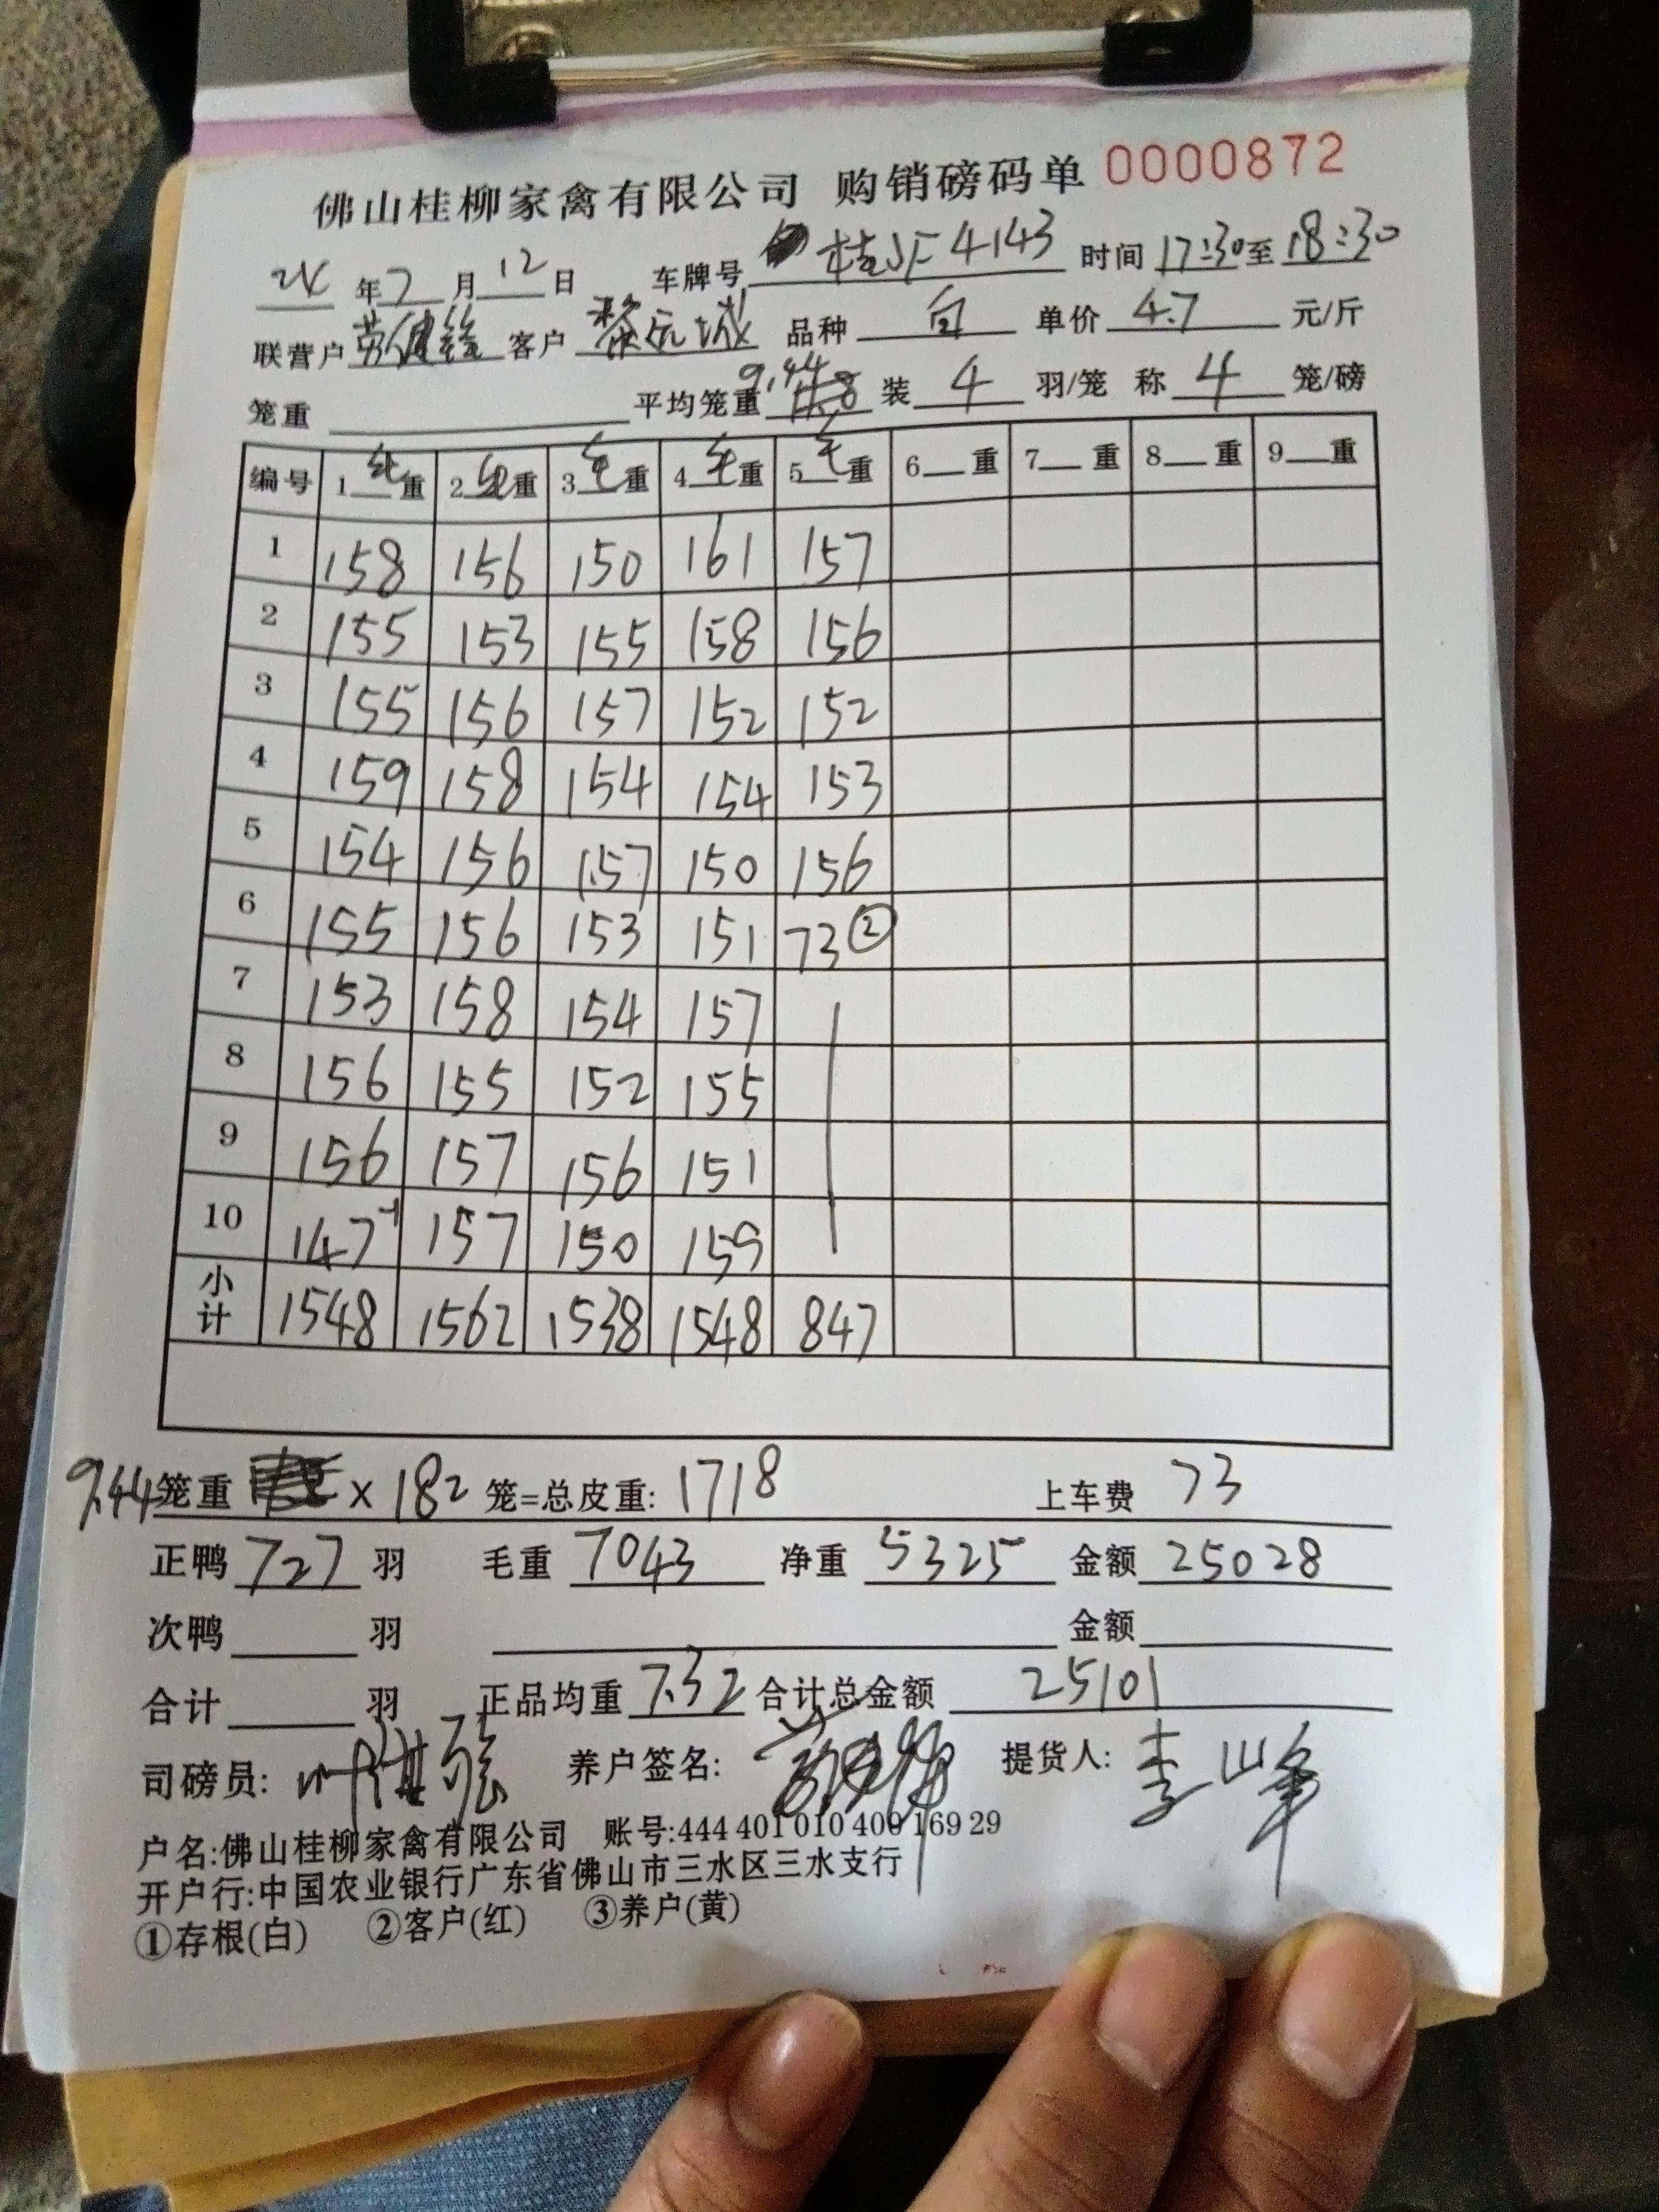 佛山桂柳家禽有限公司 购销磅码单 0000872
年 7 月 12 日 车牌号 桂 4143 时间 17:30 至 18:30
联营户 劳健 客户 黎 城 品种 白 单价 4.7 元/斤
笼重 平均笼重 9.44 装 4 羽/笼 称 4 笼/磅
编号 1 毛 重 2 毛 重 3 毛 重 4 毛 重 5 毛 重 6 重 7 重 8 重 9 重
1 158 156 150 161 157
2 155 153 155 158 156
3 155 156 157 152 152
4 159 158 154 154 153
5 154 156 157 150 156
6 155 156 153 151 73 ②
7 153 158 154 157
8 156 155 152 155
9 156 157 156 151
10 147 -1 157 150 159
小计 1548 1562 1538 1548 847
9.44 笼重 × 182 笼=总皮重: 1718 上车费 73
正鸭 727 羽 毛重 7043 净重 5325 金额 25028
次鸭 羽 金额
合计 羽 正品均重 7.32 合计总金额 25101
司磅员: 叶 养户签名: 提货人: 李山峰
户名:佛山桂柳家禽有限公司 账号:444 401 010 400 169 29
开户行:中国农业银行广东省佛山市三水区三水支行
①存根(白) ②客户(红) ③养户(黄)